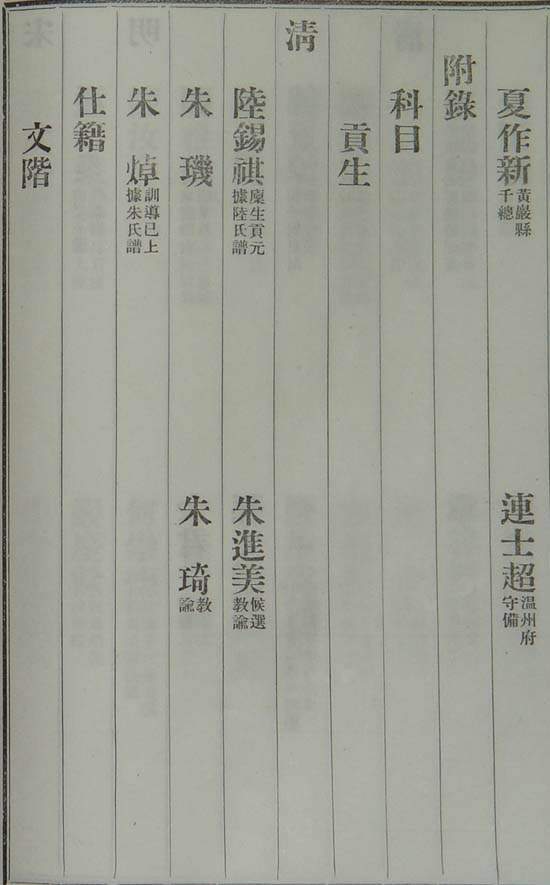 夏作新黃巖縣千總 連士超温州府守備
附錄
科目
貢生
清
陸錫祺廩生貢元據陸氏譜 朱進美候選教諭
朱璣 朱琦教諭
朱焯訓導已上據朱氏譜
仕籍
文階